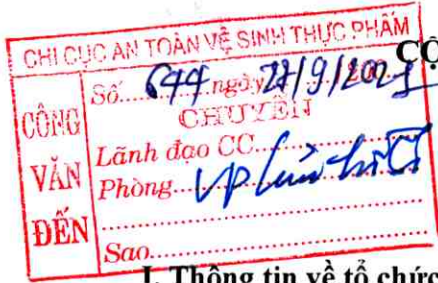 CHI CỤC AN TOÀN VỆ SINH THỰC PHẨM
CÔNG VĂN ĐẾN
Số 644 ngày 27/9/2021
CHUYỂN
Lãnh đạo CC
Phòng VP
Sao
CỘ
I. Thông tin về tổ chức